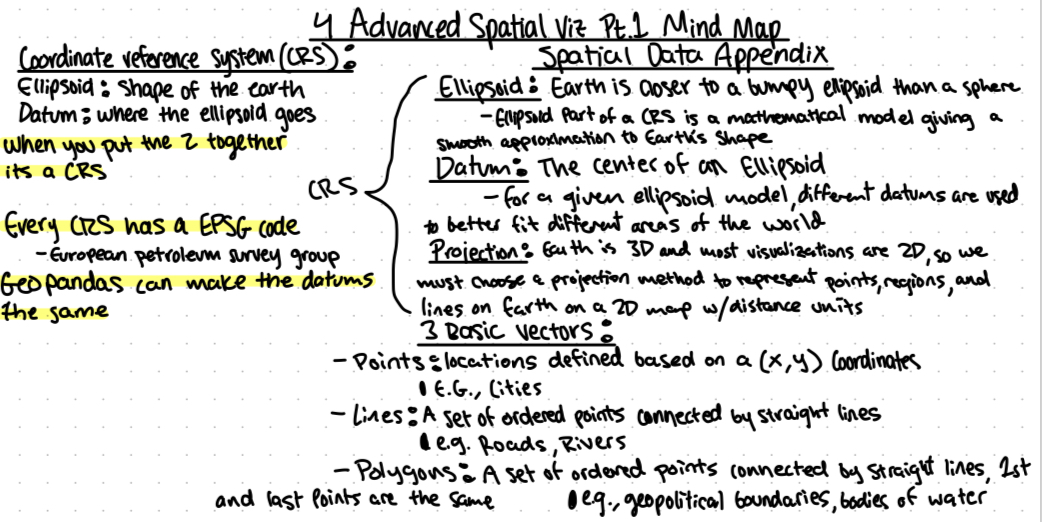 4 Advanced Spatial Viz Pt.1 Mind Map
Spatial Data Appendix
Coordinate reference system (CRS):
Ellipsoid: Shape of the earth
Datum: where the ellipsoid goes
when you put the 2 together
its a CRS
Every CRS has a EPSG code
- European petroleum survey group
Geopandas can make the datums
the same
CRS
Ellipsoid: Earth is closer to a bumpy ellipsoid than a sphere
- Ellipsoid Part of a CRS is a mathematical model giving a
smooth approximation to Earth's Shape
Datum: The center of an Ellipsoid
- for a given ellipsoid model, different datums are used
to better fit different areas of the world
Projection: Earth is 3D and most visualizations are 2D, so we
must choose a projection method to represent points, regions, and
lines on Earth on a 2D map w/distance units
3 Basic Vectors:
- Points: locations defined based on a (x,y) Coordinates
E.G., Cities
- Lines: A set of ordered points connected by straight lines
e.g. Roads, Rivers
- Polygons: A set of ordered points connected by straight lines, 1st
and last Points are the same e.g., geopolitical boundaries, bodies of water